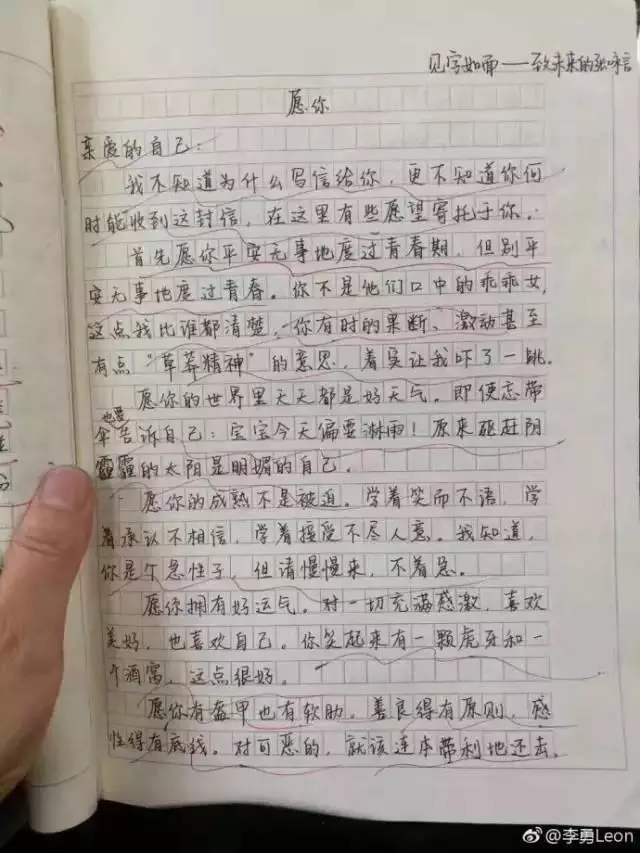 见字如面——致未来的张咏言
愿你
亲爱的自己:
我不知道为什么写信给你,更不知道你何
时能收到这封信,在这里有些愿望寄托于你。
首先愿你平安无事地度过青春期,但别平
安无事地度过青春。你不是他们口中的乖乖女,
这点我比谁都清楚,你有时的果断、激动甚至
有点“草莽精神”的意思,着实让我吓了一跳。
愿你的世界里天天都是好天气。即便忘带
也要
伞告诉自己:宝宝今天偏要淋雨!原来驱赶阴
霾的太阳是明媚的自己.
愿你的成熟不是被迫。学着笑而不语,学
着承认不相信,学着接受不尽人意。我知道,
你是个急性子,但请慢慢来,不着急。
愿你拥有好运气。对一切充满感激,喜欢
美好,也喜欢自己。你笑起来有一颗虎牙和一
个酒窝,这点很好。
愿你有盔甲也有软肋。善良得有原则,感
性得有底线。对可恶的,就该连本带利地还去。
@李勇Leon